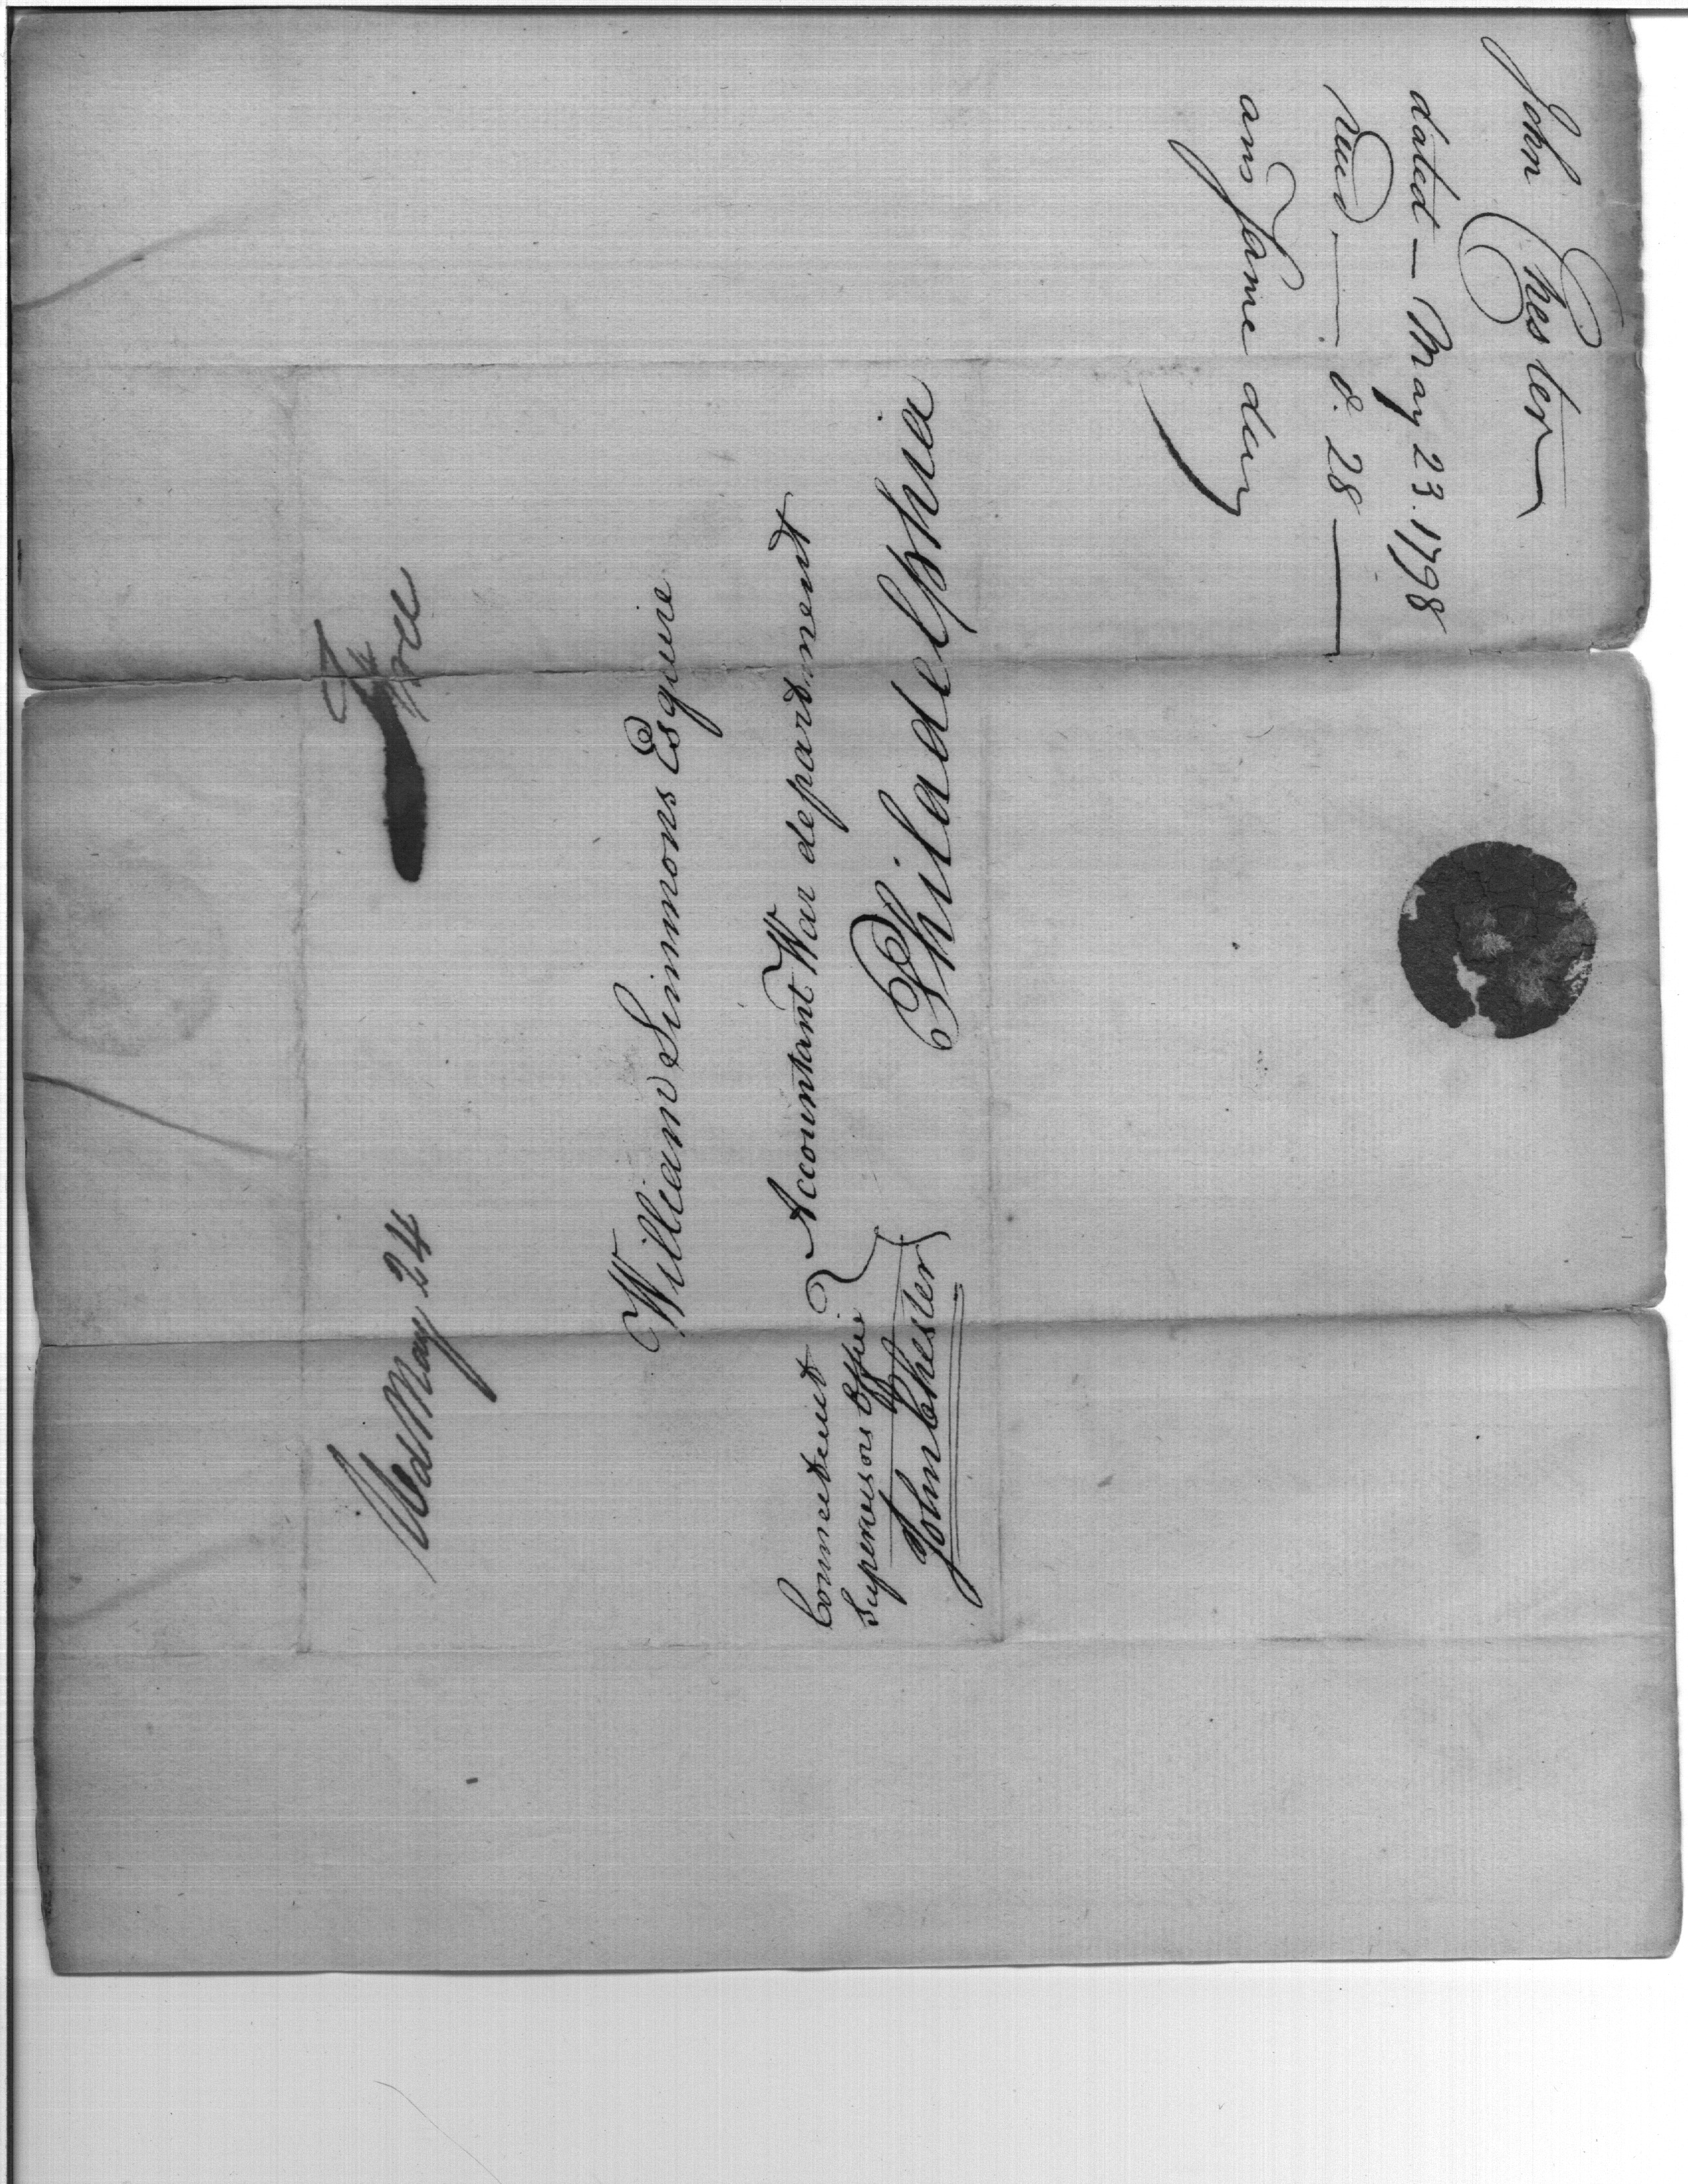 John Chester
dated — May 23. 1798
Recd. — d. 28 —
ans Same day
Wed May 24
Free
William Simmons Esquire
Accountant War department
Philadelphia
Connecticut
Supervisors Office
John Chester